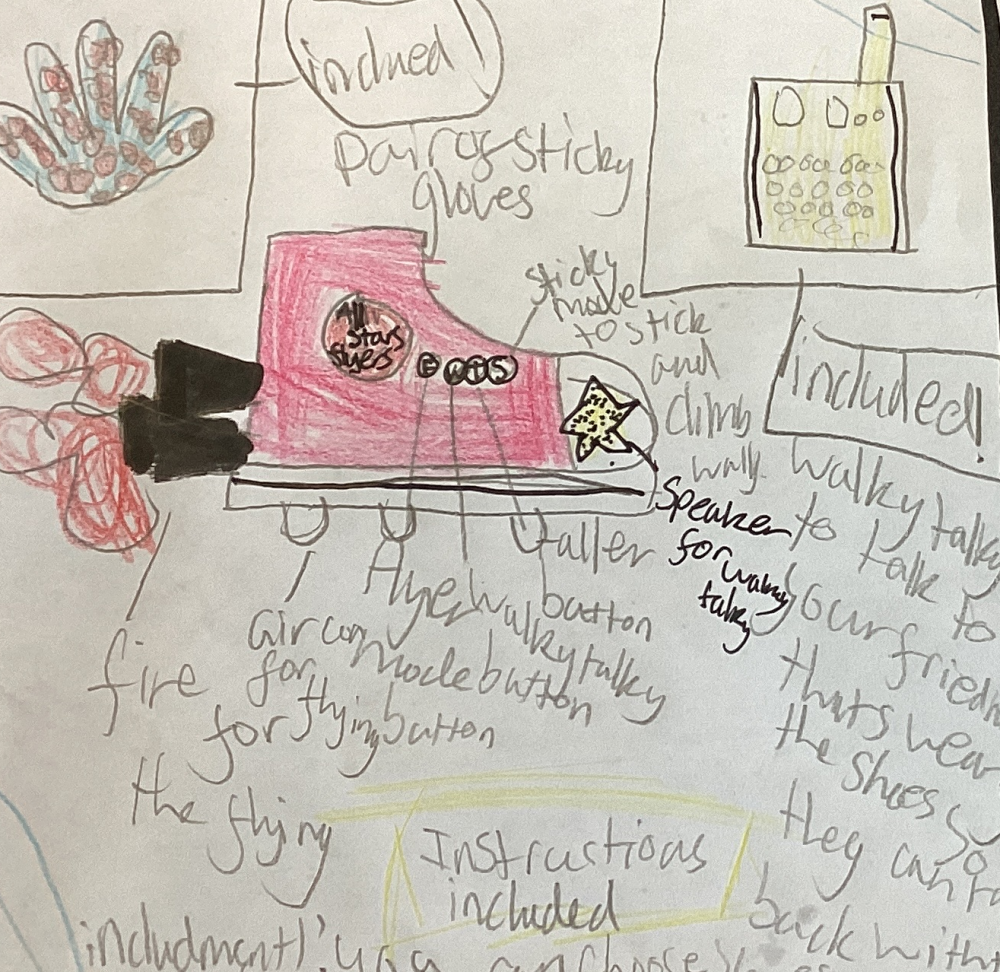 inclued
pair of sticky
gloves
sticky
mode
to stick
and
climb
wally.
All
stars
flyers
F W T S
included!
walky talky
to talk to
your
thats wear
the shoes so
they can
back with
speaker
for walky
talky
taller
button
flyer
mode button
walky talky
button
air con
for
flying
fire
for
the flying
Instructions
included
includment)!
choose